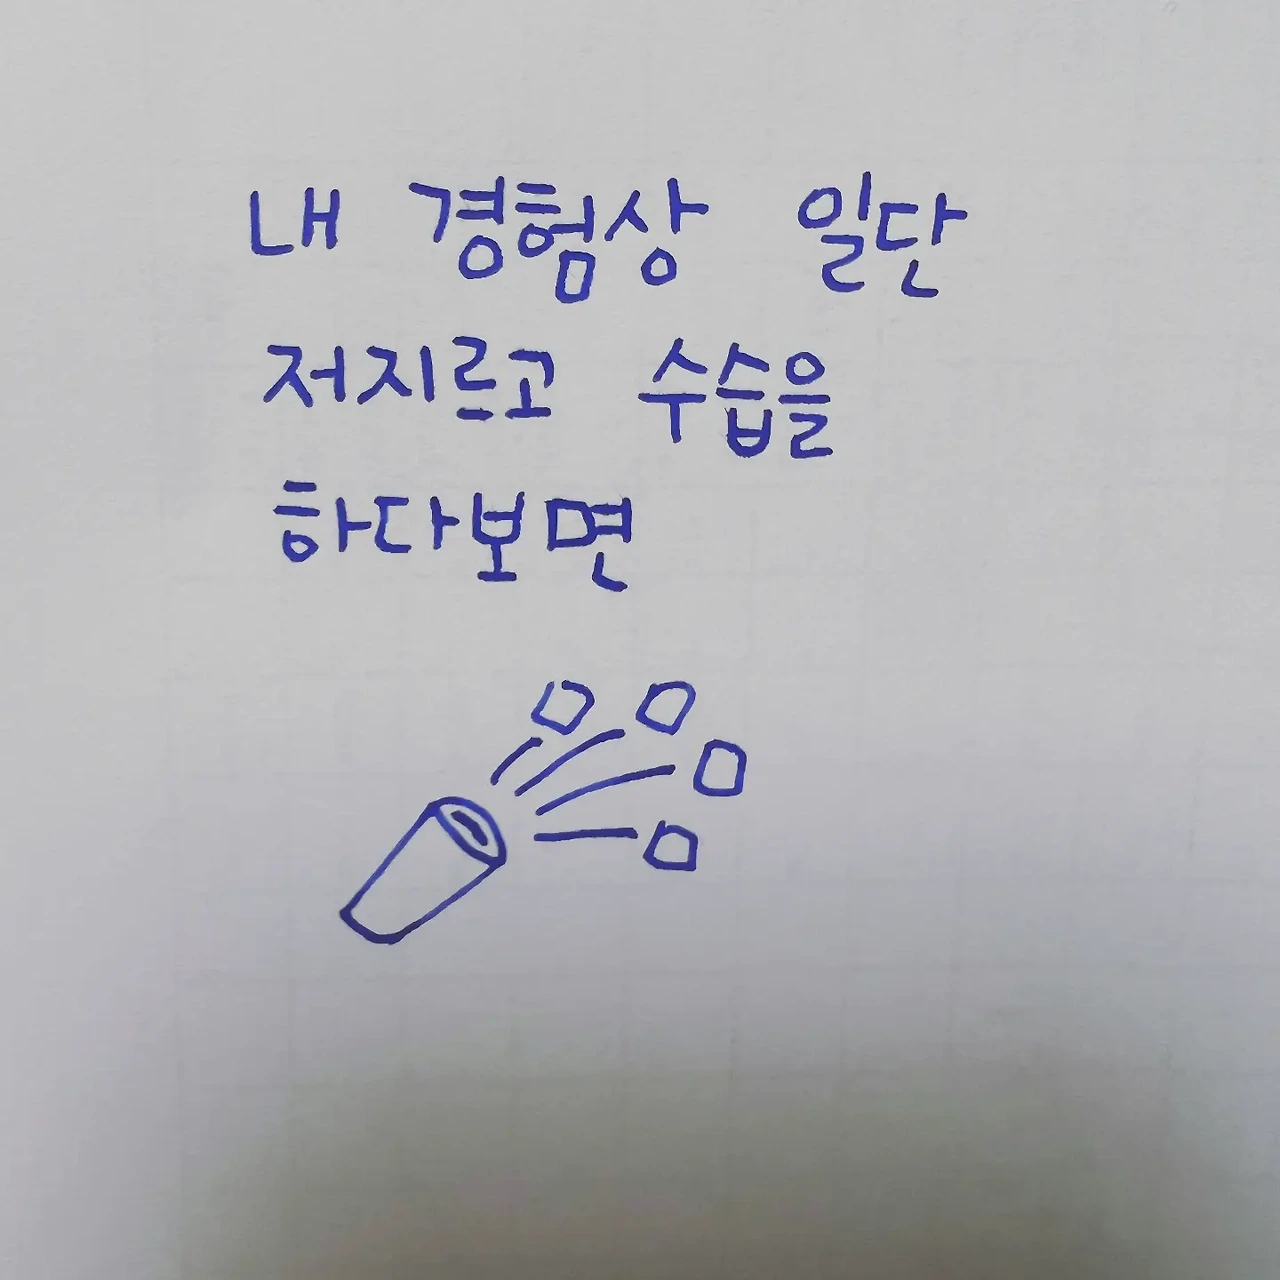 내 경험상 일단
저지르고 수습을
하다보면